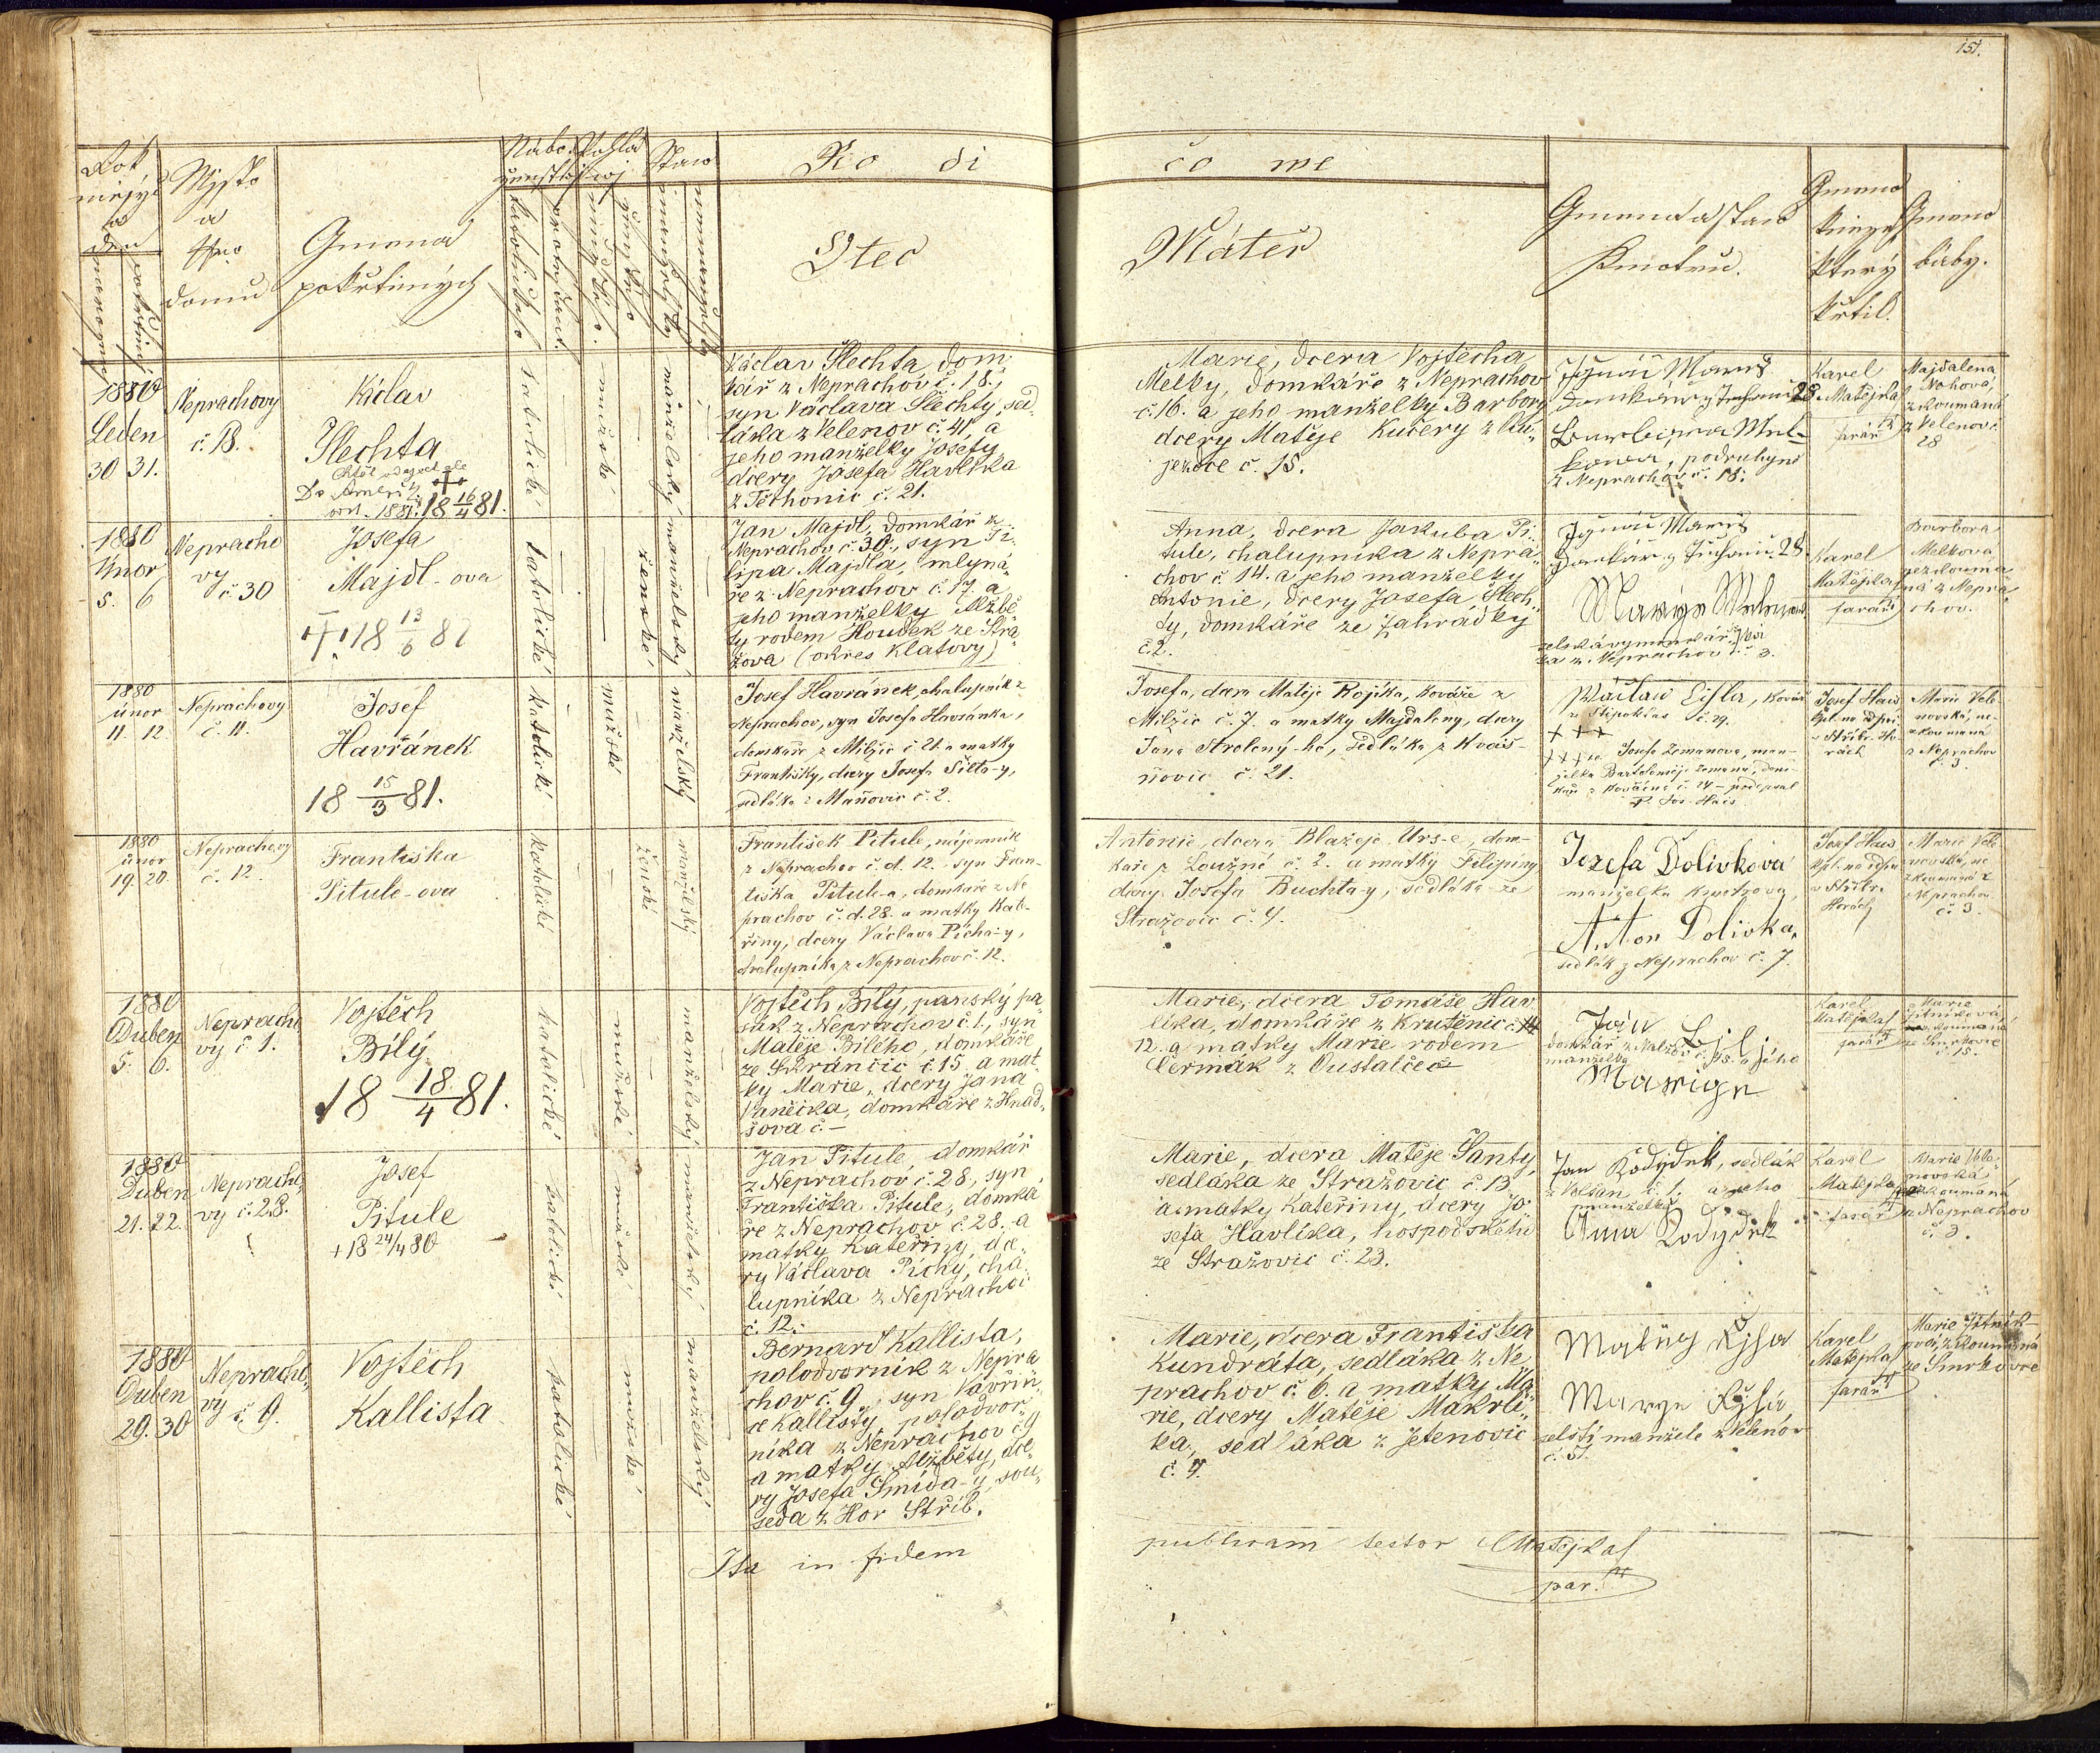 151.
Rok
měsýc
a
den
narození
pokřtění
Mjsto
a
Čjslo
domu
Gmena
pokřtěných
Nábo-
ženstvj
katolického
protestant.
Pohla-
wj
mužského
ženského
Staw
manželský
nemanželský
Ro di
čo we
Otec
Máteř
Gmena a staw
Kmotrů.
Gmeno
kněze
který
křtil.
Gmeno
báby.
1880
Leden
30 31.
Neprachovy
č. 18.
Václav
Šlechta
Do Ameriky
18 16/4 81.
katolické
mužské
manželský
Václav Šlechta, dom
kář z Neprachov č. 18.,
syn Václava Šlechty, sed-
láka z Velenov č. 41 a
jeho manželky Josefy
dcery Josefa Havlíka
z Těchonic č. 21.
Marie, dcera Vojtěcha
Melky, domkáře z Neprachov
č. 16. a jeho manželky Barbory
dcery Matěje Kučery z Ou-
jezdce č. 15.
Ignác Mareš
domkář z 28.
Barbora Mel-
kova, podruhyně
z Neprachov č. 18.
Karel
Matějka
farář
Majdalena
zkoumaná
z Velenov č.
28
1880
Unor
5. 6
Nepracho
vy
č 30
Josefa
Majdl-ova
† 18 13/6 82
katolické
ženské
manželský
Jan Majdl, domkář z
Neprachov č. 30., syn Fi-
lipa Majdla, mlyná-
ře z Neprachov č. 17. a
jeho manželky Alžbě
ty rodem Houdek ze Stra-
žova (okres Klatovy)
Anna, dcera Jakuba Pi-
tule, chalupníka z Nepra-
chov č. 14. a jeho manželky
Antonie, dcery Josefa Šlech-
ty, domkáře ze Zahrádky
č. 2.
Ignác Mareš
domkář z 28.
z Neprachov č. 3.
Karel
Matějka
farář
Barbora
Melkova
nezkouma
ná z Nepra-
chov.
1880
únor
11. 12.
Neprachovy
č. 11.
Josef
Havránek
18 15/3 81.
katolické
mužské
manželský
Josef Havránek, chalupník z
Neprachov, syn Josefa Havránka,
domkáře z Milčic č. 21. a matky
Františky, dcery Josefa Šilta-y,
sedláka z Maňovic č. 2.
Josefa, dcera Matěje Kojíka, kováře z
Milčic č. 7. a matky Majdaleny, dcery
Jana Strolený-ho, sedláka z Kvaš-
ňovic č. 21.
Wáclaw Eisler, kovář
č. 29.
+ + +
+ + + Josefa Zemanova, man-
želka Bartoloměje Zemana, dom-
káře z Kovčína č. 24 – podepsal
P. Jos. Hais
Josef Hais
Marie Vele-
novská, ne-
zkoumaná
z Neprachov
č. 3.
1880
únor
19. 20.
Neprachovy
č. 12.
Františka
Pitule-ova
katolické
ženské
manželský
František Pitule, nájemník
z Neprachov č. d. 12. syn Fran-
tiška Pitule-a, domkáře z Ne
prachov č. d. 28. a matky Kate-
řiny, dcery Václava Pícha-y,
chalupníka z Neprachov č. 12.
Antonie, dcera Blažeje Urs-e, dom-
káře z Loužné č. 2. a matky Filipiny
dcery Josefa Buchta-y, sedláka ze
Stražovic č. 4.
Jozefa Dolivková
manželka kmotrova,
Anton Dolivka,
sedlák z Neprachov č. 7.
Josef Hais
Marie Vele
novská, ne
zkoumaná z
Neprachov
č. 3.
1880
Duben
5. 6.
Nepracho
vy č. 1.
Vojtěch
Bílý
18 18/4 81.
katolické
mužské
manželský
Vojtěch Bílý, panský pa-
sák z Neprachov č. 1., syn
Matěje Bílého, domkáře
ze Skránčic č. 15 a mat-
ky Marie, dcery Jana
Vaněčka, domkáře z Hnad-
šova č. –
Marie, dcera Tomáše Hav
líka, domkáře z Krutěnic č.
12. a matky Marie rodem
Čermák z Oustalče
Ján Bjlj
domkář a jeho
manželka
Marige
Karel
Matějka
farář
Marie
Žitníková,
zkoumaná
ze Smrkovce
č. 15.
1880
Duben
21. 22.
Nepracho-
vy č. 28.
Josef
Pitule
+ 18 24/4 80
katolické
mužské
manželský
Jan Pitule, domkář
z Neprachov č. 28, syn
Františka Pitule, domká
ře z Neprachov č. 28. a
matky Kateřiny, dce-
ry Václava Píchy, cha-
lupníka z Neprachov
č. 12.
Marie, dcera Matěje Šanty,
sedláka ze Stražovic č. 13
a matky Kateřiny, dcery Jo-
sefa Havlíka, hospodského
ze Stražovic č. 23.
Jan Kodýdek, sedlák
z Volšan č. 1. a jeho
manželka
Anna Kodydek
Karel
Matějka
farář
Marie Vele-
novská
zkoumaná
z Neprachov
č. 3.
1880
Duben
29. 30
Nepracho-
vy č. 9.
Vojtěch
Kallista
katolické
mužské
manželský
Bernard Kallista,
polodvorník z Nepra
chov č. 9, syn Vavřin-
ce Kallisty, polodvor-
níka z Neprachov č. 9
a matky Alžběty, dce-
ry Josefa Šmída-y, sou-
seda z Hor Stříb.
Marie, dcera Františka
Kundráta, sedláka z Ne
prachov č. 6. a matky Ma-
rie, dcery Matěje Makrli-
ka, sedláka z Jetenovic
č. 7.
Matěg Ryssa
Marye Ryšá
selští manželé z Velenov
č. 51.
Karel
Matějka
farář
Marie Žitník-
ová, zkoumaná
ze Smrkovce
Ita in fidem
publicam testor Matějka
par.